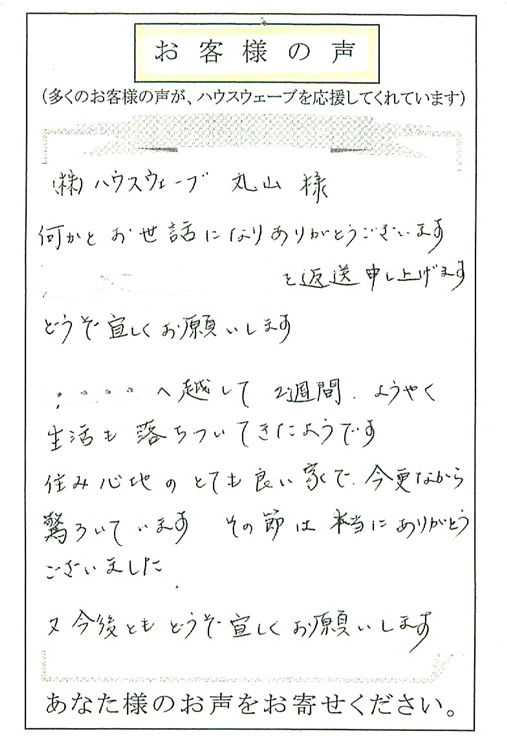 お客様の声
(多くのお客様の声が、ハウスウェーブを応援してくれています)
(株)ハウスウェーブ 丸山 様
何かと お世話になりありがとうございます
を返送申し上げます
どうぞ宜しくお願いします
へ越して 2週間、ようやく
生活も落ちついてきたようです
住み心地のとても良い家で、今更ながら
驚ろいています その節は本当にありがとう
ございました.
又今後とも どうぞ宜しくお願いします
あなた様のお声をお寄せください。